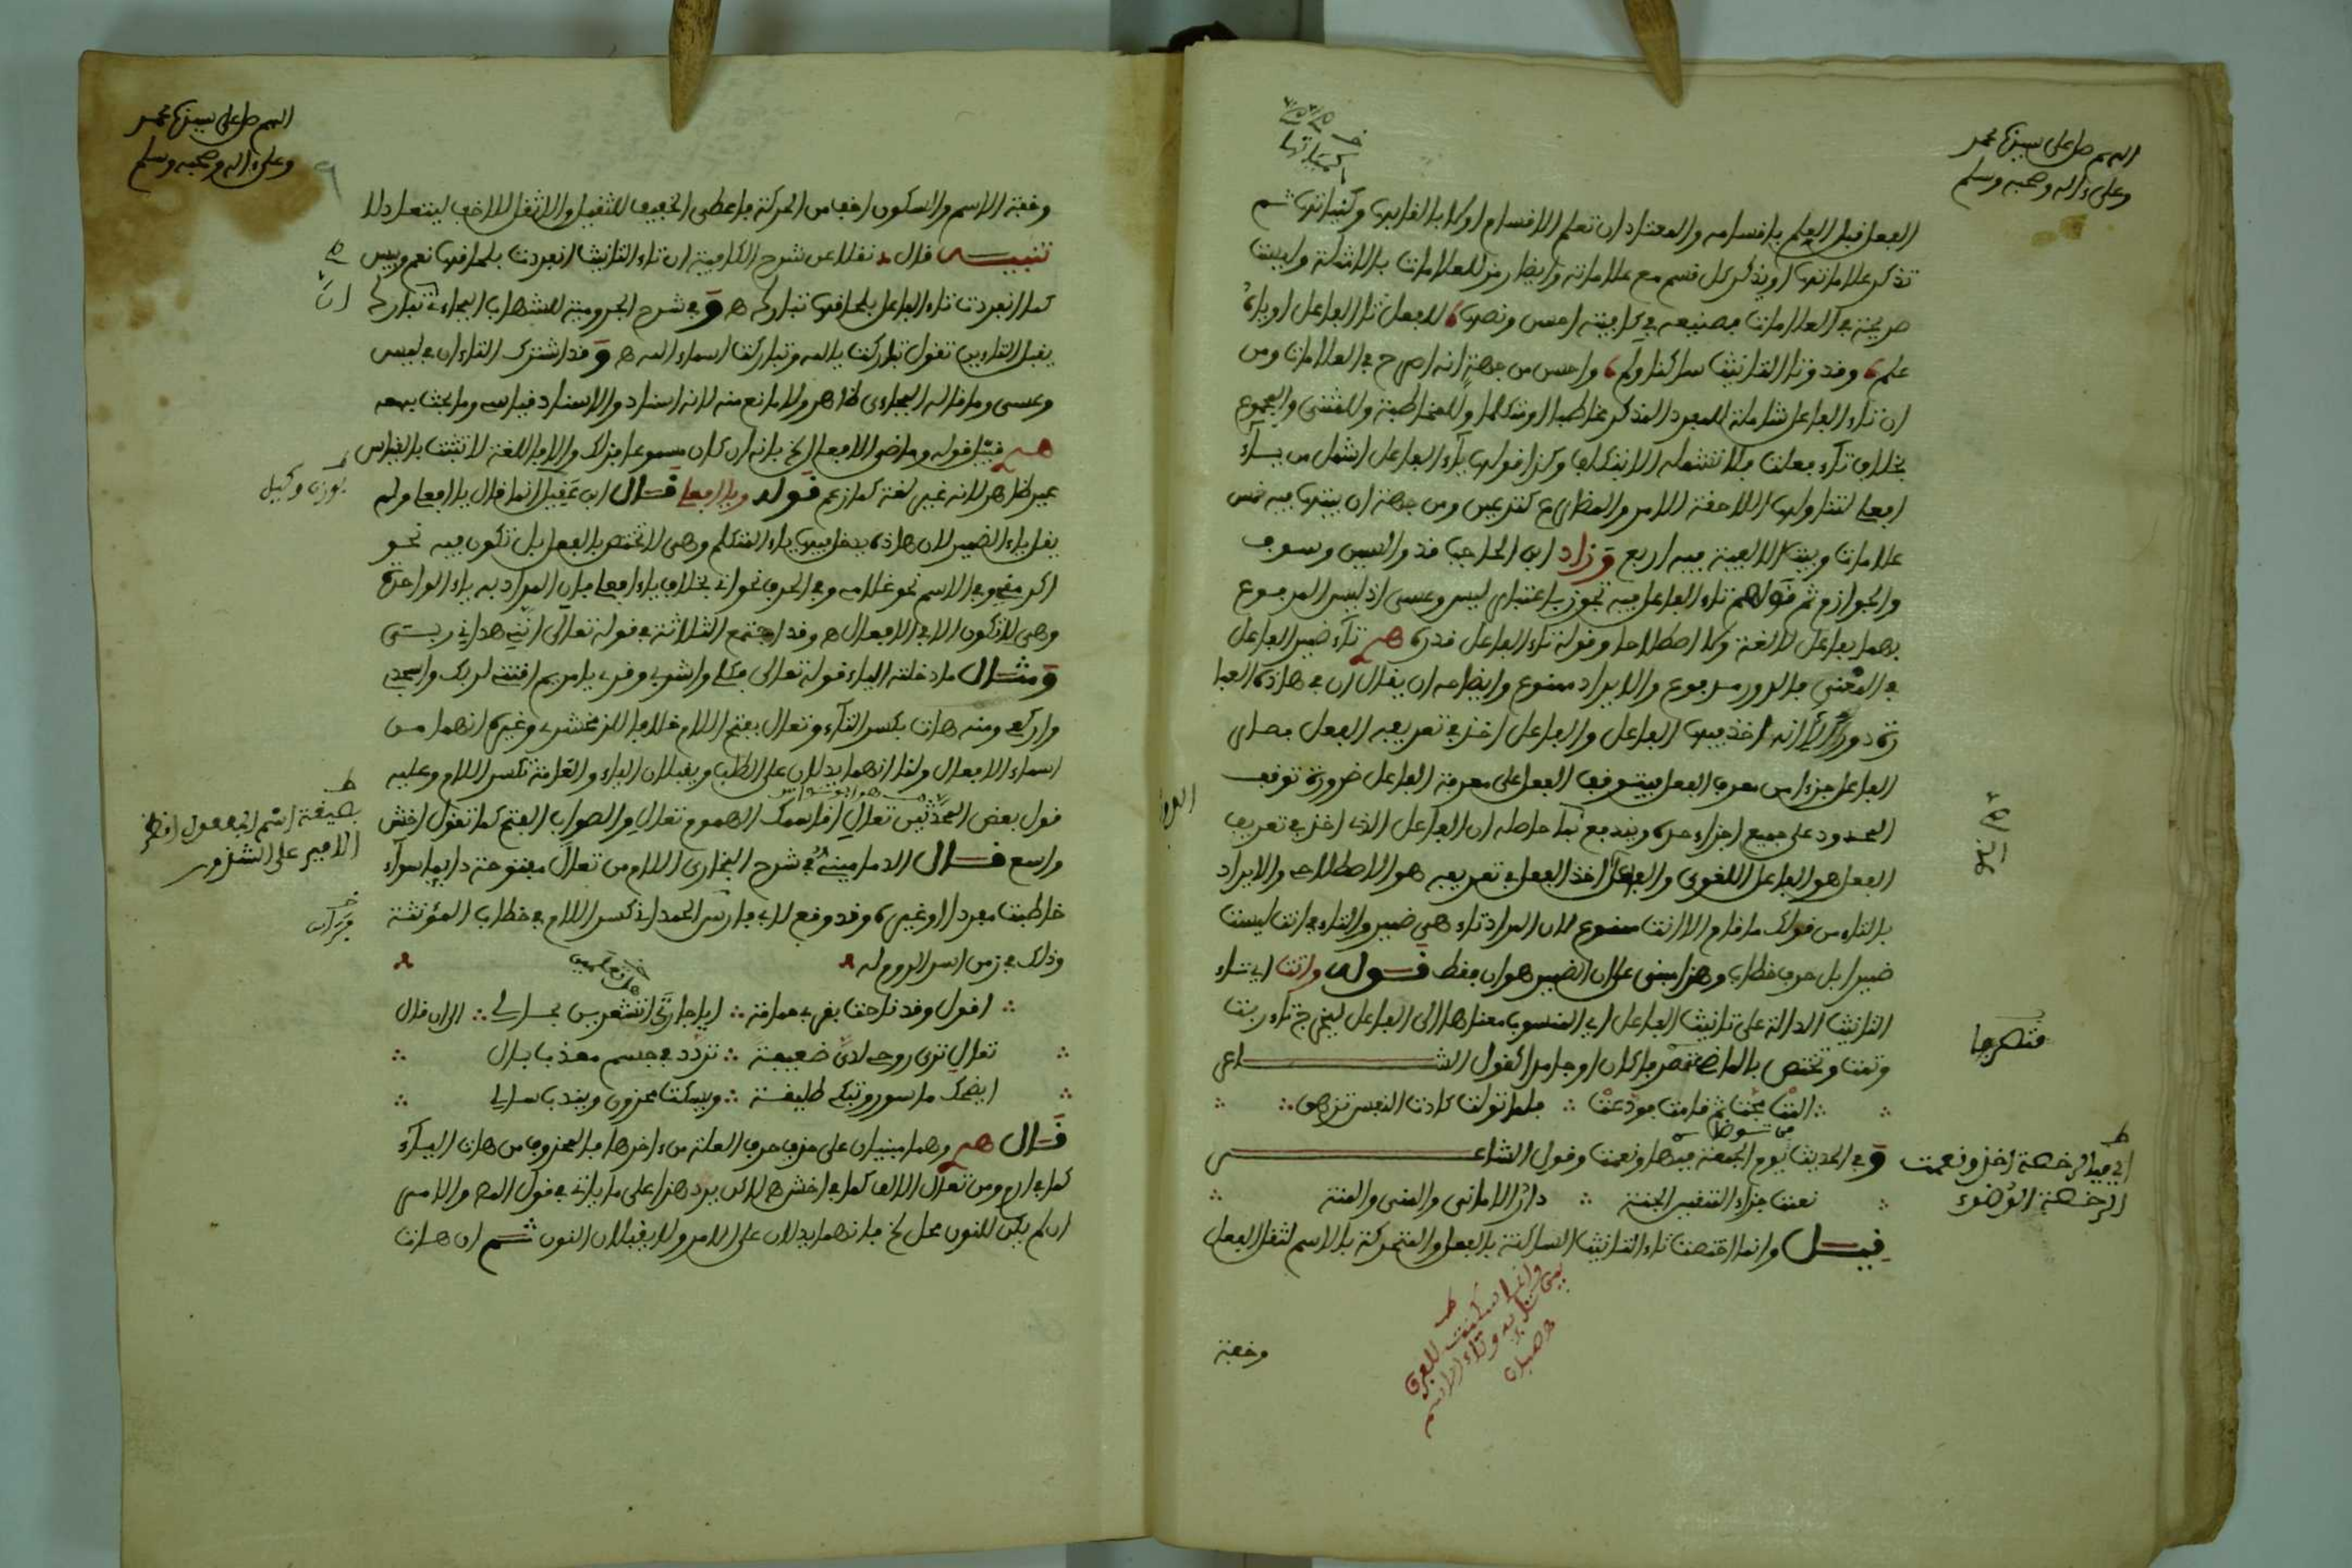 اللهم صل على سيدنا محمد
وعلى ءاله وصحبه وسلم
الفعل قبل العلم باقسامه والمعتاد ان تعلم الاقسام اولا بالقابها وكمياتها ثم
تذكر علاماتها او يذكر كل قسم مع علاماته وايضا رمز للعلامات بالامثلة وليست
صريحة في العلامات فصنيعه في كافيته احسن ونصها للفعل تا الفاعل او ياء
علم وقد وتا التانيث ساكنا ولم واحسن من جهة انه اصرح في العلامات ومن
ان تاء الفاعل شاملة للمفرد المذكر مخاطبا او متكلما وللمخاطبة وللمثنى والمجموع
بخلاف تاء فعلت فلا تشمله الا بتكلف وكذا قولها ياء الفاعل اشمل من ياء
افعلي لتناولها اللاحقة للامر والمضارع كتفعلين ومن جهة ان بيتها فيه خمس
علامات وبيت الالفية فيه اربع وزاد ابن الحاجب قد والسين وسوف
والجوازم ثم قولهم تاء الفاعل فيه تجوز باعتبار ليس وعسى اذ ليس المرفوع
بهما بفاعل لا لغة ولا اصطلاحا وقوله تاء الفاعل قدره تاء ضمير الفاعل
في المعنى فالدور مرفوع والايراد ممنوع وايضاحه ان يقال ان في هاذه العبا
رة دورا لانه اخذ فيها الفاعل والفاعل اخذ في تعريفه الفعل فصار
الفاعل جزءا من معرف الفعل فيتوقف الفعل على معرفة الفاعل ضرورة توقف
المحدود على جميع اجزاء حده ويندفع بما حاصله ان الفاعل الذي اخذ في تعريف
الفعل هو الفاعل اللغوي والفاعل اخذ الفعل في تعريفه هو الاصطلاحي والايراد
بالتاء من قولك ما قام الا انت ممنوع لان المراد تاء هي ضمير والتاء في انت ليست
ضميرا بل حرف خطاب وهذا مبني على ان الضمير هو ان فقط قوله واتت اي تاء
التانيث الدالة على تانيث الفاعل اي المنسوب معناها الى الفاعل ليخرج تاء ربت
وثمت وتختص بالماضي متصرفا كان او جامدا كقول الشاعر
المت فحيت ثم قامت فودعت فلما تولت كادت النفس تزهق
وفي الحديث يوم الجمعة فبها ونعمت وقول الشاعر
نعمت جزاء المتقين الجنة دار الاماني والمنى والمنة
قيل وانما اختصت تاء التانيث الساكنة بالفعل والمتحركة بالاسم لثقل الفعل
وخفة
متصرفا
اي فبالرخصة اخذ ونعمت
الرخصة الوضوء
اللهم صل على سيدنا محمد
وعلى ءاله وصحبه وسلم
وخفة الاسم والسكون اخف من الحركة فاعطي الخفيف للثقيل والاثقل للاخف ليتعادلا
تنبيه قال نقلا عن شرح الكافية ان تاء التانيث انفردت بلحاقها نعم وبيس
كما انفردت تاء الفاعل بلحاقها تبارك ه وفي شرح الجرومية للشهاب البجاءي تبارك
يقبل التاءين تقول تباركت يالله وتباركت اسماء الله ه وقد اشترك التاءان في ليس
وعسى وما قاله البجاءي ظاهر ولا مانع منه لانه اسناد والاسناد قياسي وما بحث به معه
فيه قوله وماضي الافعال الخ بانه ان كان مسموعا فذاك والا فاللغة لا تثبت بالقياس
غير ظاهر لانه غير لغة كما زعم قوله ويا افعلي قال ابن عقيل انما قال يا افعلي ولم
يقل ياء الضمير لان هاذه يدخل فيها ياء المتكلم وهي لا تختص بالفعل بل تكون فيه نحو
اكرمني وفي الاسم نحو غلامي وفي الحرف نحو اني بخلاف ياء افعلي فان المراد به ياء الواحدة
وهي لا تكون الا في الافعال ه وقد اجتمع الثلاثة في قوله تعالى انني هداني ربي
ومثال ما دخلته الياء قوله تعالى فكلي واشربي وقري يا مريم اقنتي لربك واسجدي
واركعي ومنه هات بكسر التاء وتعال بفتح اللام خلافا للزمخشري وغيره انهما من
اسماء الافعال ولنا انهما يدلان على الطلب ويقبلان الياء والعامة تكسر اللام وعليه
قول بعض المحدثين تعالي اقاسمك الهموم تعالي والصواب الفتح كما تقول اخش
واسع قال الدماميني في شرح البخاري اللام من تعال مفتوحة دايما سواء
خاطبت مفردا او غيره وقد وقع لابي فارس الحمداني كسر اللام في خطاب المؤنثة
وذلك في زمن اسر الروم له
اقول وقد ناحت بقربي حمامة ايا جارتي اتشعرين بحالي الى ان قال
تعالي تري روحي لدي ضعيفة تردد في جسم معذب بال
ايضحك ماسور وتبكي طليقة ويسكت محزون ويندب سالي
قال وهما مبنيان على حذف حرف العلة من ءاخرهما فالمحذوف من هات الياء
كما في ارم ومن تعال الالف كما في اخش ه لاكن يرد هذا على ما ياتي في قول المص والامر
ان لم يكن للنون محل الخ فانهما يدلان على الامر ولا يقبلان النون ثم ان هات
بوزن وكيل
بصيغة اسم المفعول
الامير على الشذور